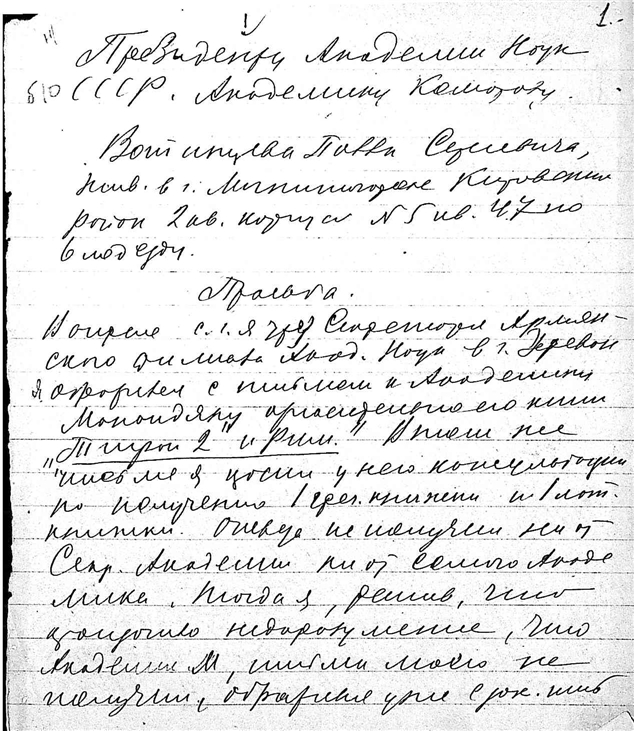 1.-
Президенту Академии Наук
СССР. Академику Комарову.
Вотинцева Павла Сергеевича,
жив. в г. Магнитогорске Кировский
район 2 кв. корпус N 5 кв. 47 по
Просьба.
В апреле с.г. я чрез Секретаря Армян-
ского филиала Акад. Наук в г. Ереван
я обратился с письмом к Академику
Манандяну относительно его книги
„Тигран 2 и Рим." В том же
письме я просил у него консультации
по получению 1 греч. книжки и 1 лат.
книжки. Ответа не получил ни от
Секр. Академии ни от самого Акаде
мика. Тогда я, решив, что
произошло недоразумение, что
Академик М, письма моего не
получил, обратился уже с зак. пись